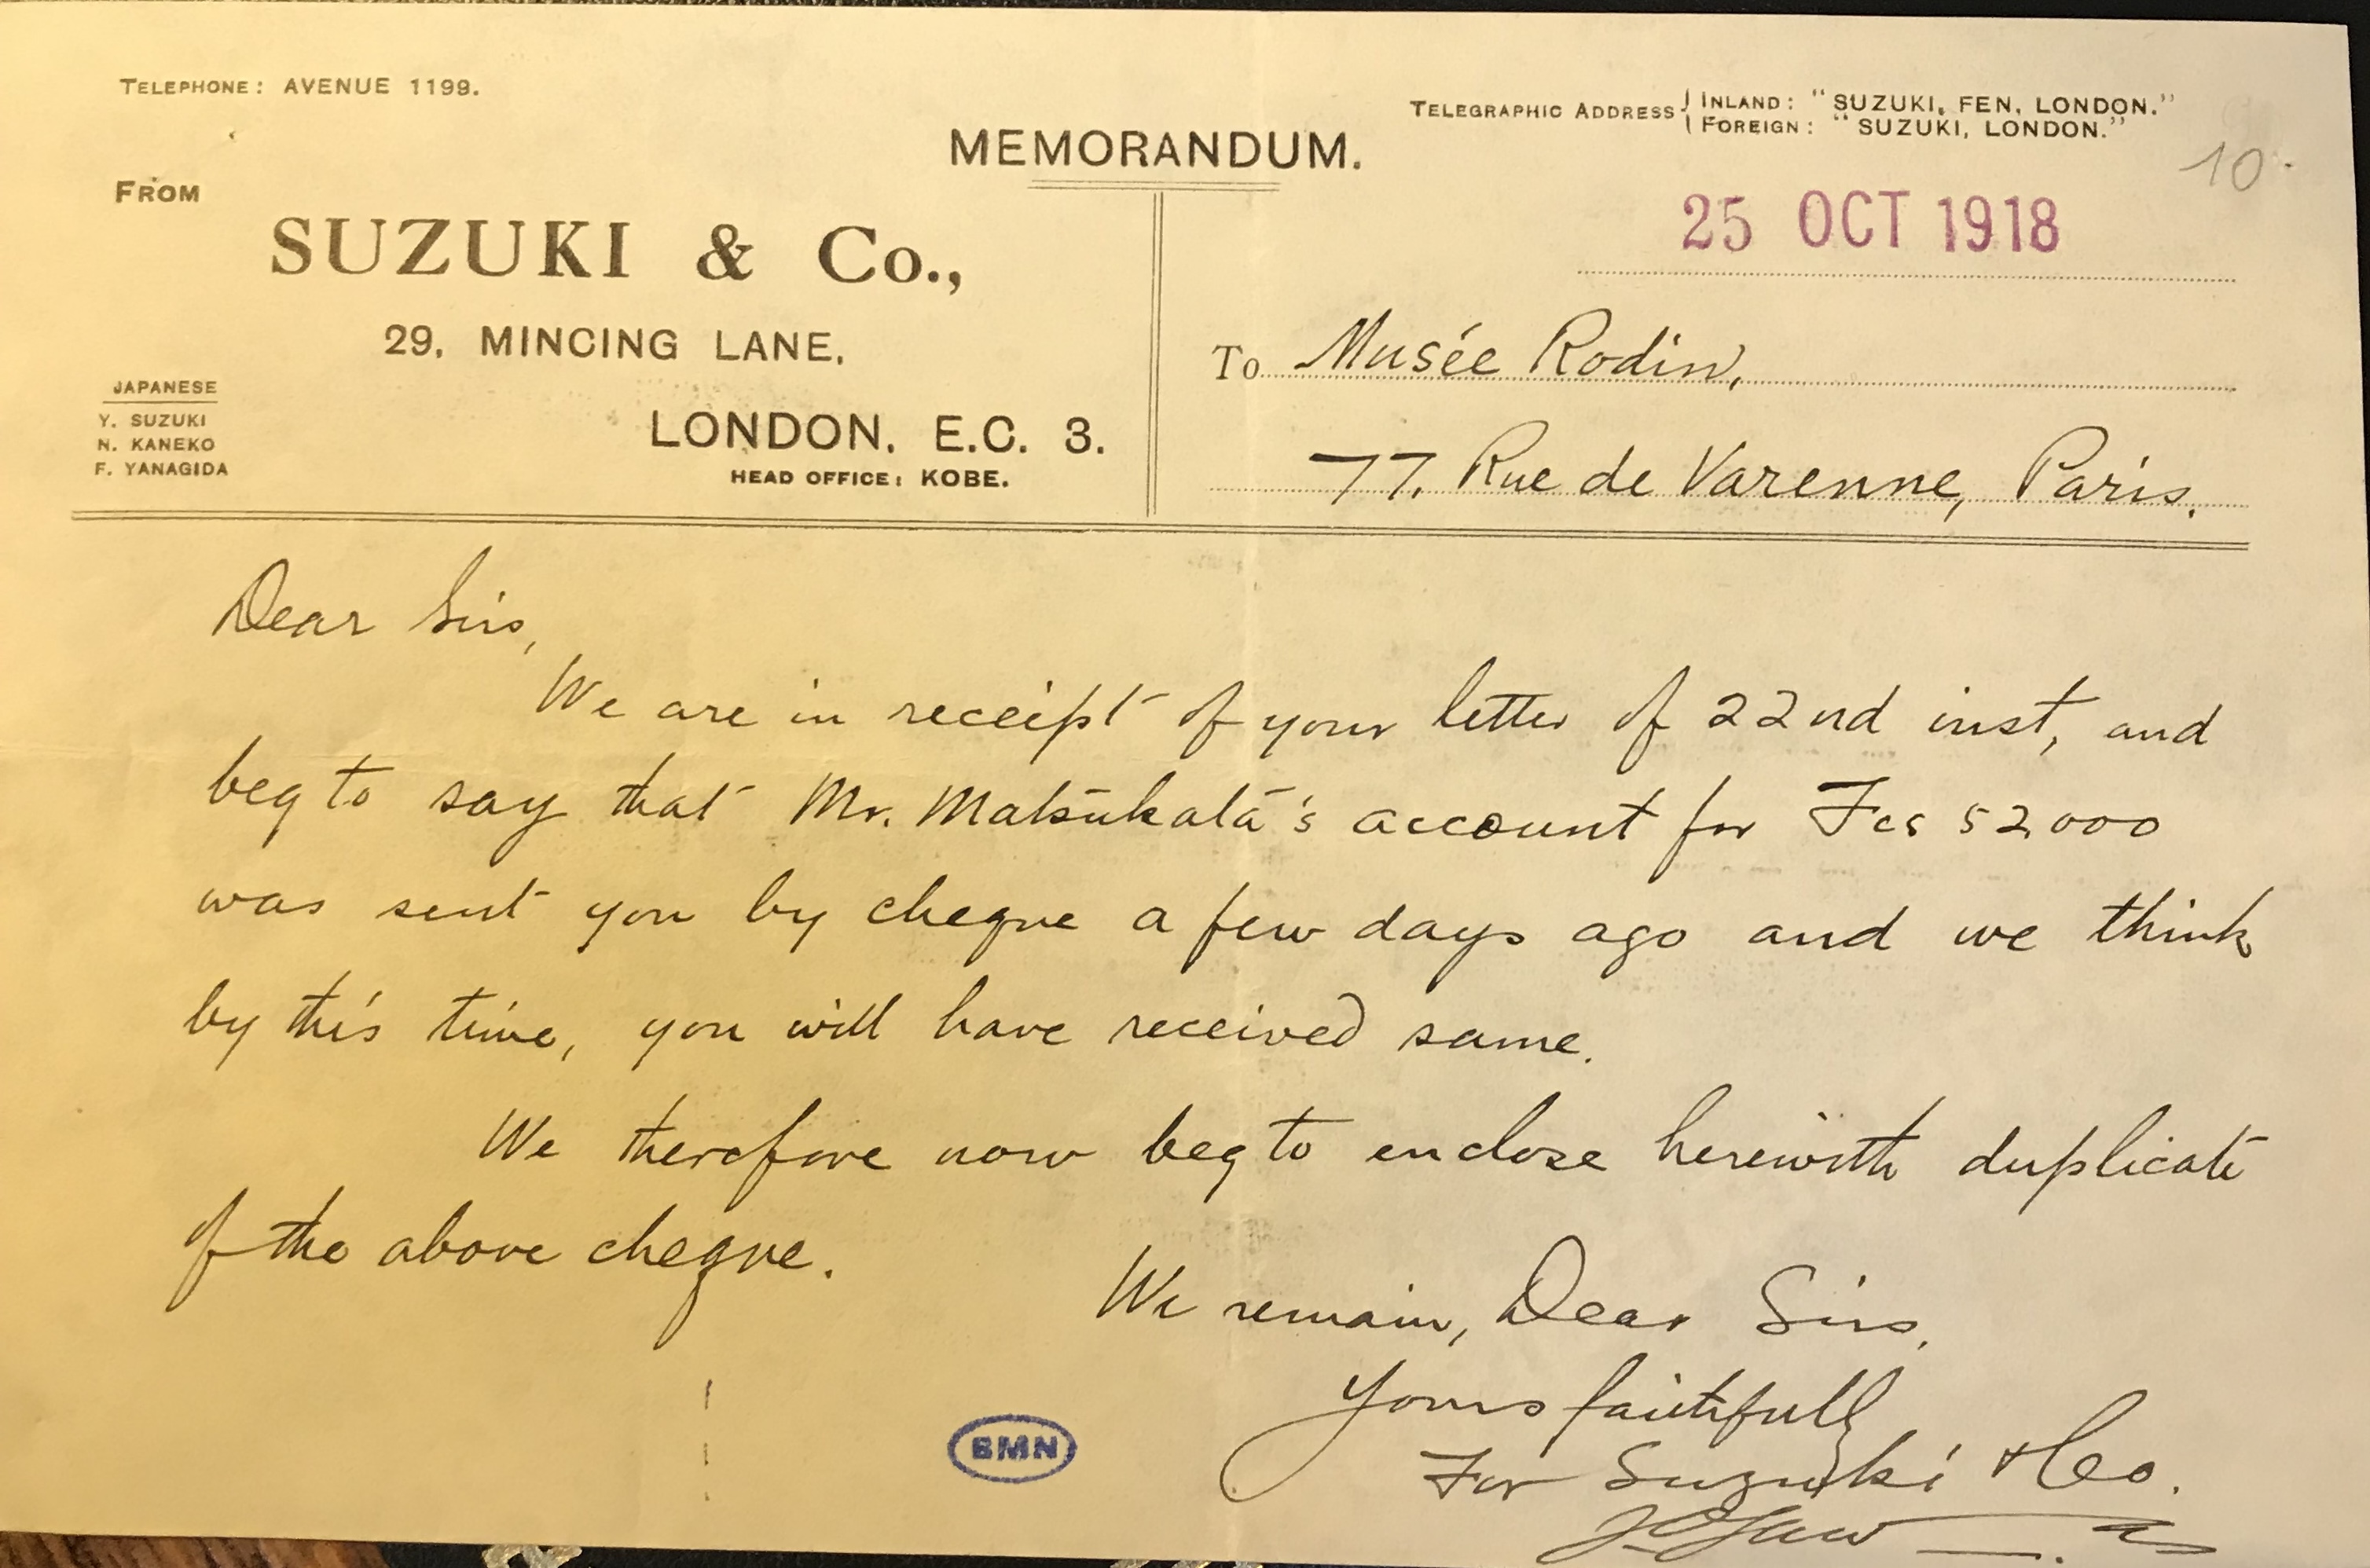 TELEPHONE: AVENUE 1199.
TELEGRAPHIC ADDRESS { INLAND: "SUZUKI, FEN, LONDON."
FOREIGN: "SUZUKI, LONDON."
10.
MEMORANDUM.
FROM
SUZUKI & Co.,
29, MINCING LANE,
LONDON, E.C. 3.
HEAD OFFICE: KOBE.
JAPANESE
Y. SUZUKI
N. KANEKO
F. YANAGIDA
25 OCT 1918
To Musée Rodin,
77, Rue de Varenne, Paris.
Dear Sirs,
We are in receipt of your letter of 22nd inst, and
beg to say that Mr. Matsukata's account for Fcs 52000
was sent you by cheque a few days ago and we think
by this time, you will have received same.
We therefore now beg to enclose herewith duplicate
of the above cheque.
We remain, Dear Sirs,
Yours faithfully
For Suzuki & Co.
BMN